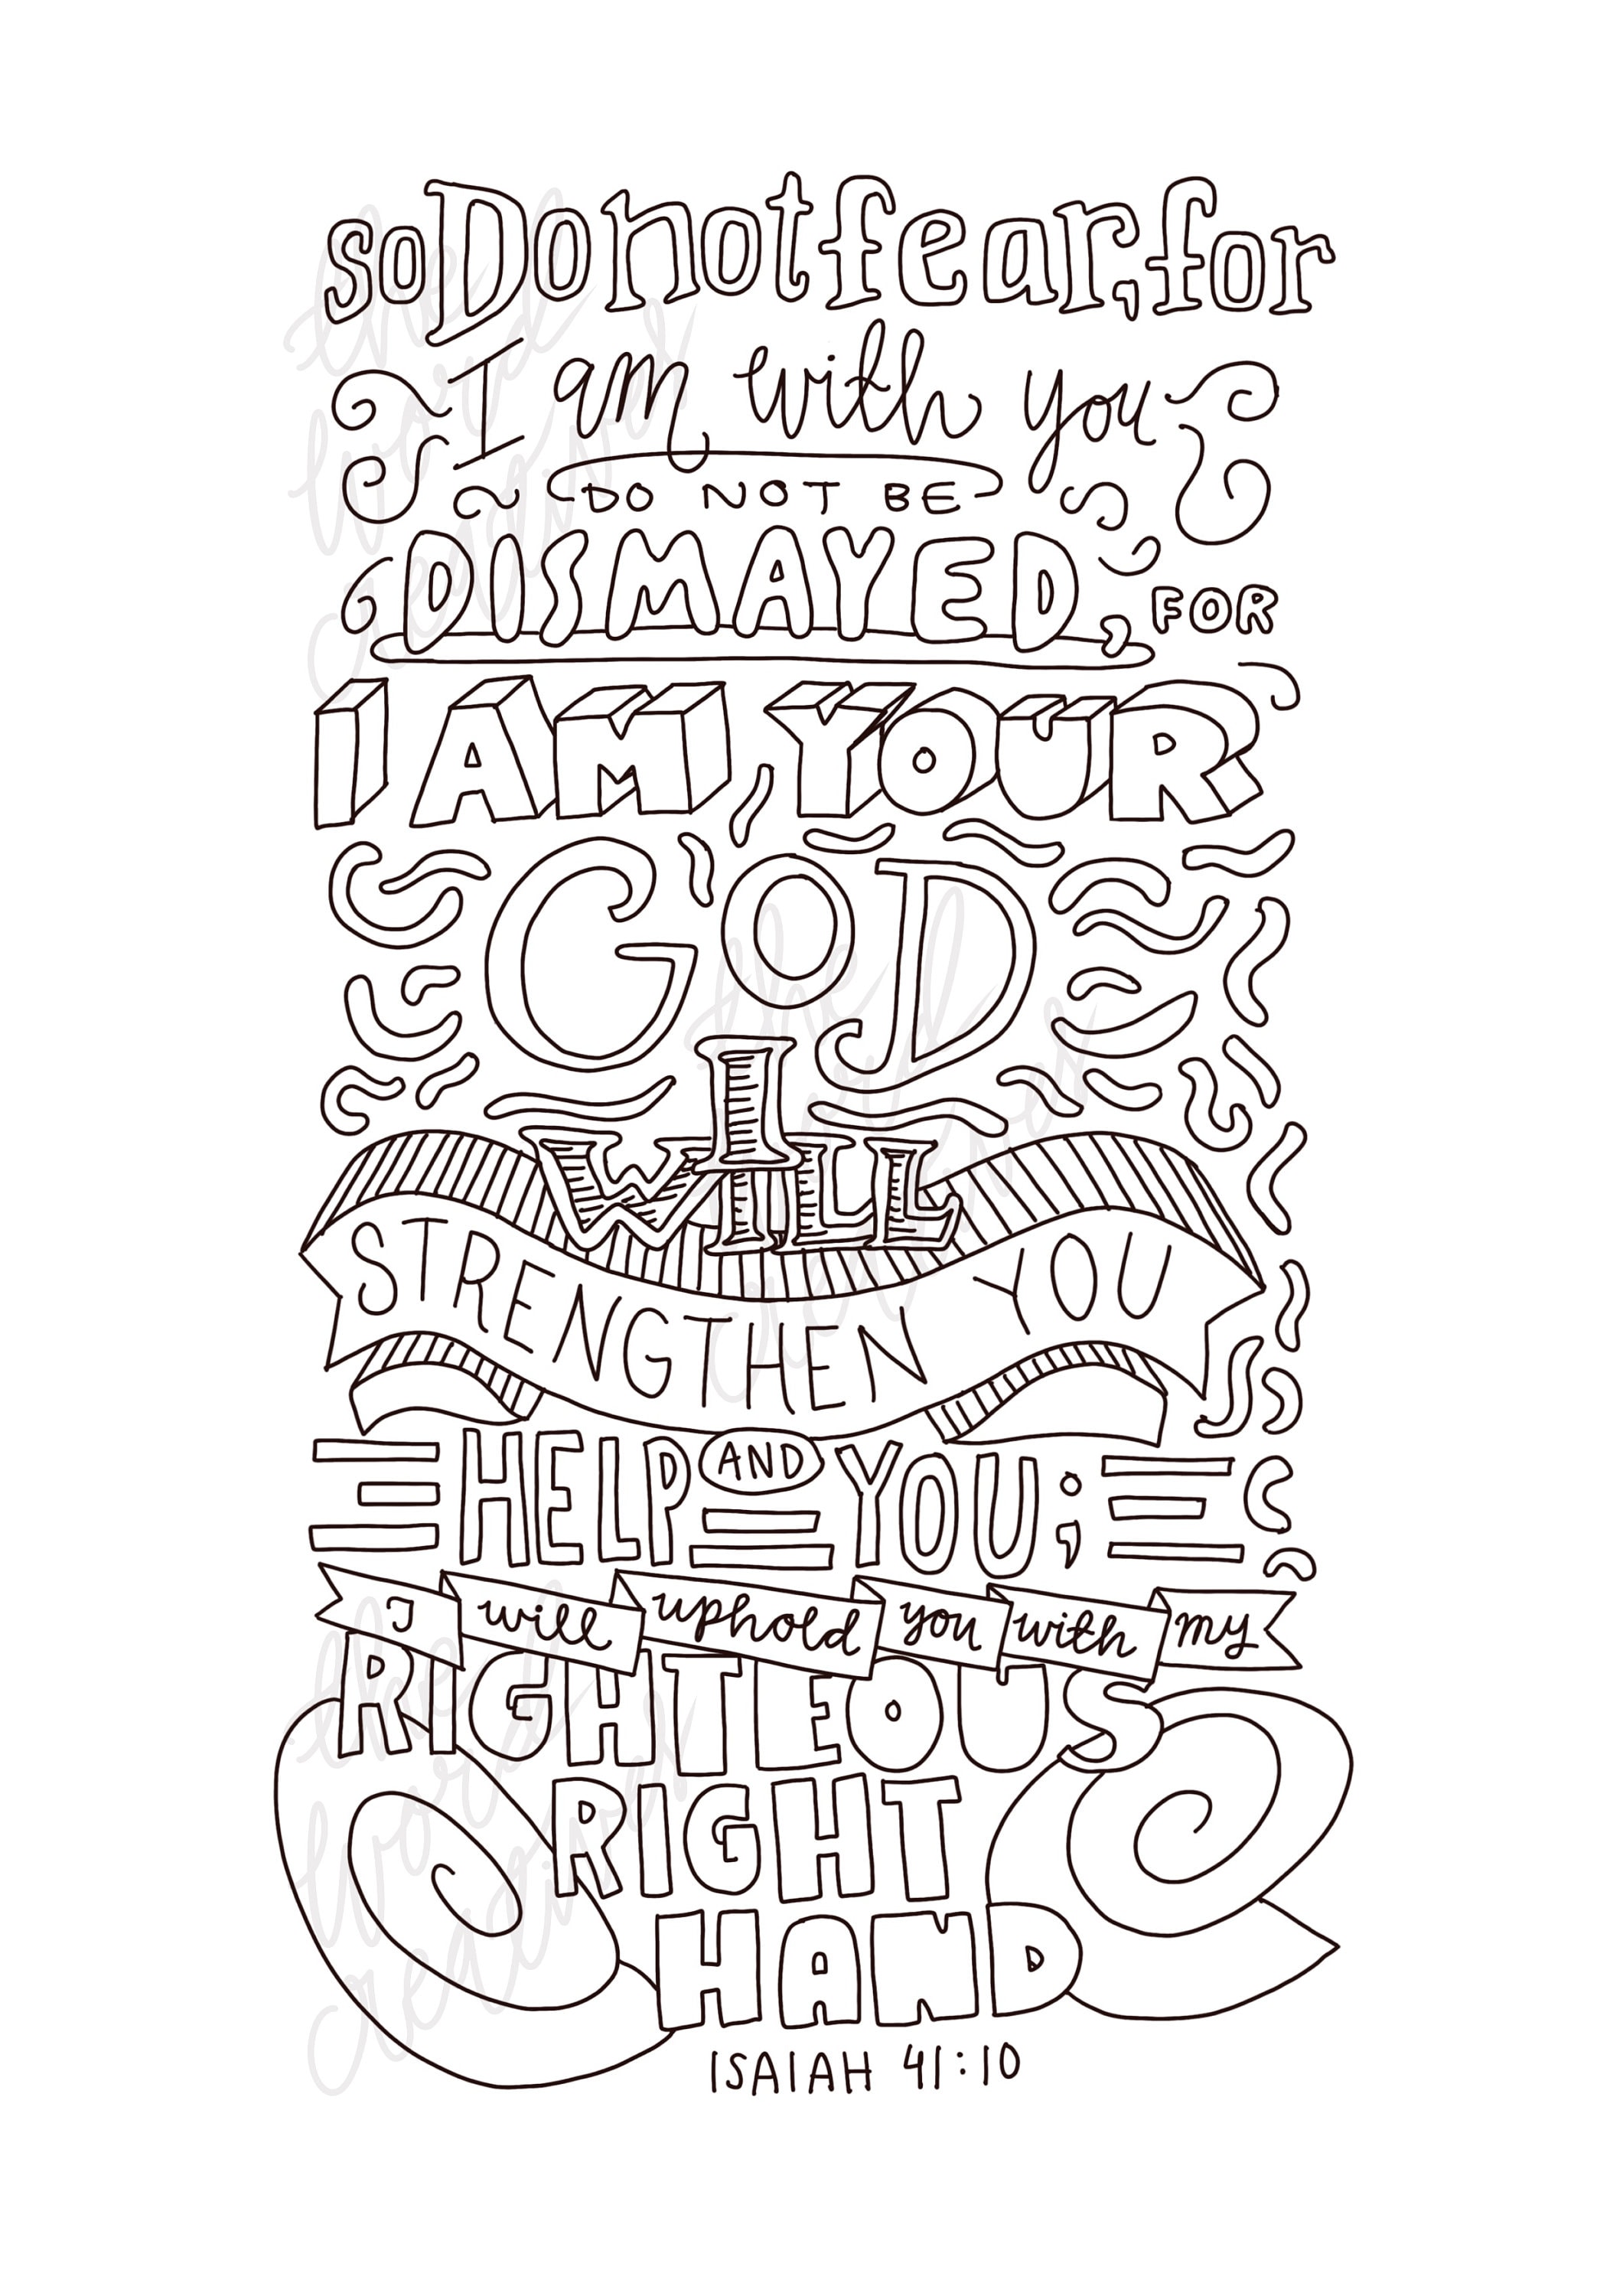 so Do not fear, for
I am with you
DO NOT BE
DISMAYED, FOR
I AM YOUR
GOD
I
WILL
STRENGTHEN YOU
HELP AND YOU;
I will uphold you with my
RIGHTEOUS
RIGHT
HAND
ISAIAH 41:10
the
word
the
word
the
word